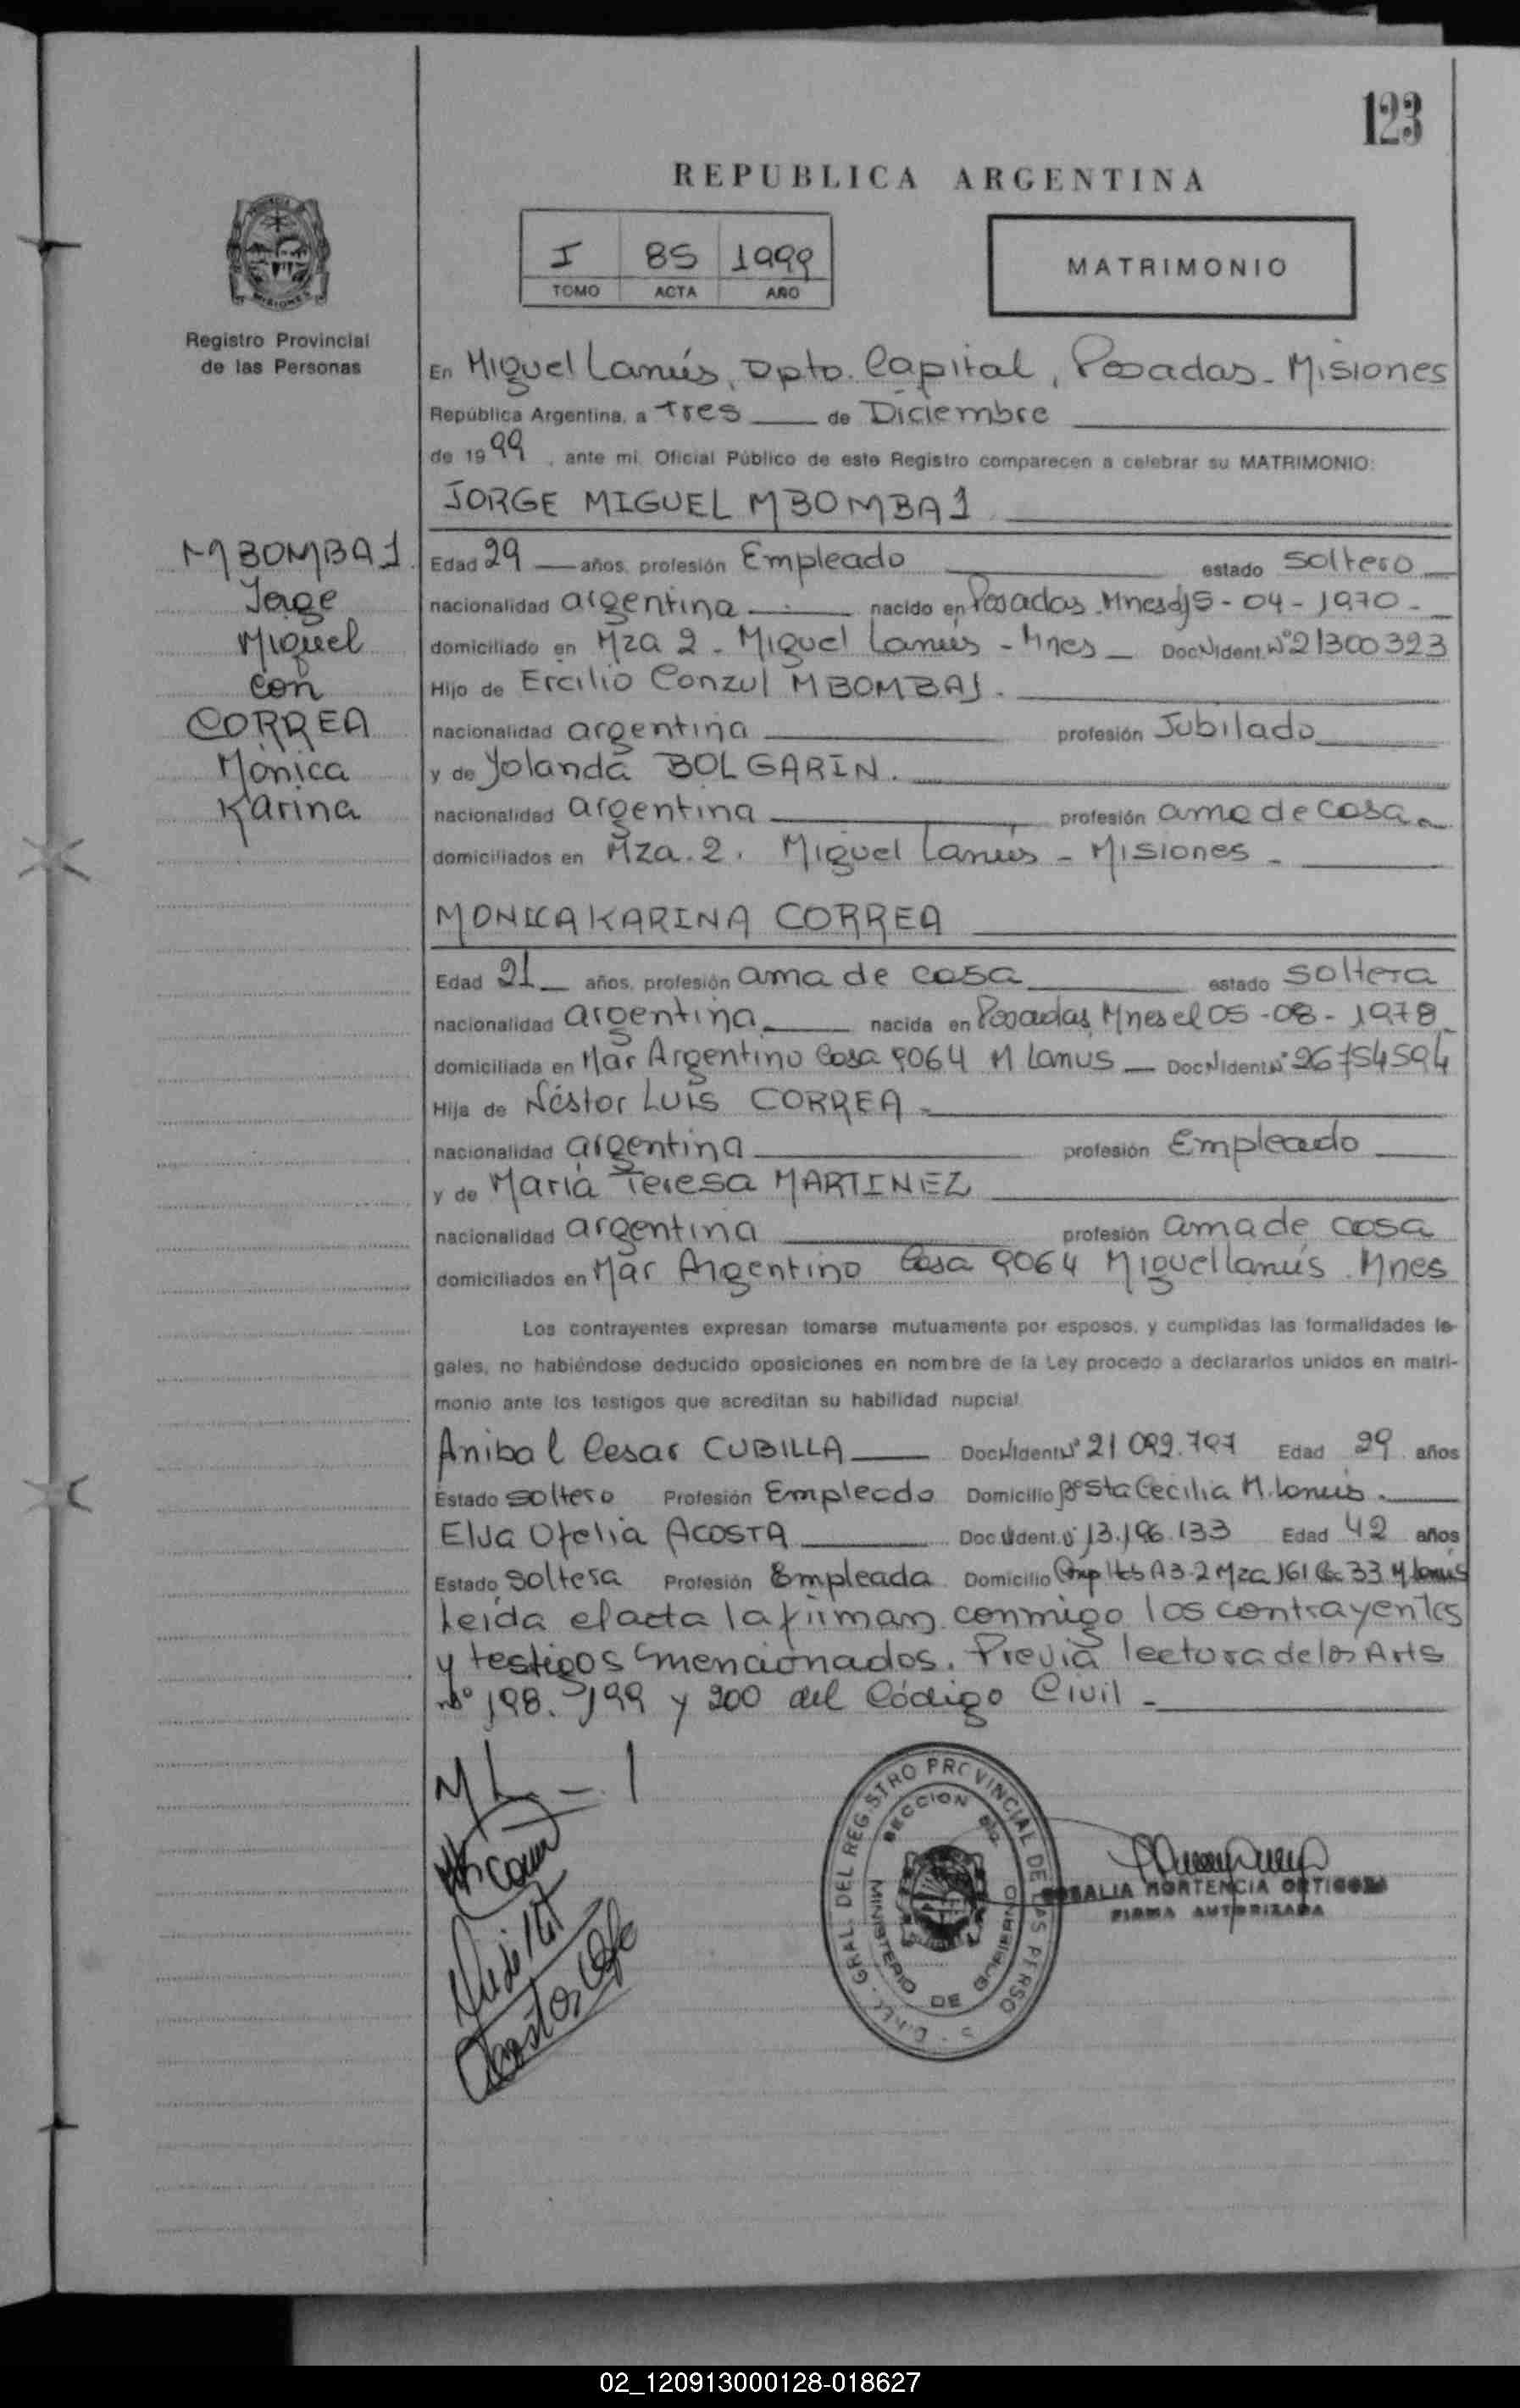 123
REPUBLICA ARGENTINA
I 85 1999
TOMO ACTA AÑO
MATRIMONIO
Registro Provincial
de las Personas
En Miguel Lanús, Dpto. Capital, Posadas - Misiones
República Argentina, a Tres de Diciembre
de 1999, ante mi, Oficial Público de este Registro comparecen a celebrar su MATRIMONIO:
JORGE MIGUEL MBOMBAJ
MBOMBAJ
Jorge
Miguel
con
CORREA
Mónica
Karina
Edad 29 años, profesión Empleado estado soltero
nacionalidad argentina nacido en Posadas Mnes 15-04-1970-
domiciliado en Mza 2 - Miguel Lanús - Mnes - Doc Ident. Nº 21300323
Hijo de Ercilio Conzul MBOMBAJ.
nacionalidad argentina profesión Jubilado
y de Yolanda BOLGARIN.
nacionalidad argentina profesión ama de casa
domiciliados en Mza. 2. Miguel Lanús - Misiones -
MONICA KARINA CORREA
Edad 21 años, profesión ama de casa estado soltera
nacionalidad argentina nacida en Posadas Mnes el 05-08-1978
domiciliada en Mar Argentino Casa 9064 M Lanus - Doc Ident Nº 26754594
Hija de Néstor Luis CORREA -
nacionalidad argentina profesión Empleado
y de María Teresa MARTINEZ
nacionalidad argentina profesión ama de casa
domiciliados en Mar Argentino Casa 9064 Miguel Lanús. Mnes
Los contrayentes expresan tomarse mutuamente por esposos, y cumplidas las formalidades le-
gales, no habiéndose deducido oposiciones en nombre de la Ley procedo a declararlos unidos en matri-
monio ante los testigos que acreditan su habilidad nupcial
Anibal Cesar CUBILLA Doc Ident Nº 21 092.797 Edad 29 años
Estado soltero Profesión Empleado Domicilio Bº Sta Cecilia M. Lanús.
Elva Ofelia ACOSTA Doc Ident. Nº 13.196.133 Edad 42 años
Estado soltera Profesión Empleada Domicilio A3-2 Mza 161 Cs 33 M Lanús
Leída el acta la firman conmigo los contrayentes
y testigos mencionados. Previa lectura de los Arts
nº 198. 199 y 200 del Código Civil -
DIR. GRAL. DEL REGISTRO PROVINCIAL DE LAS PERSO
SECCION
MINISTERIO DE GOBIERNO
ROSALIA HORTENCIA ORTIGOZA
FIRMA AUTORIZADA
02_120913000128-018627